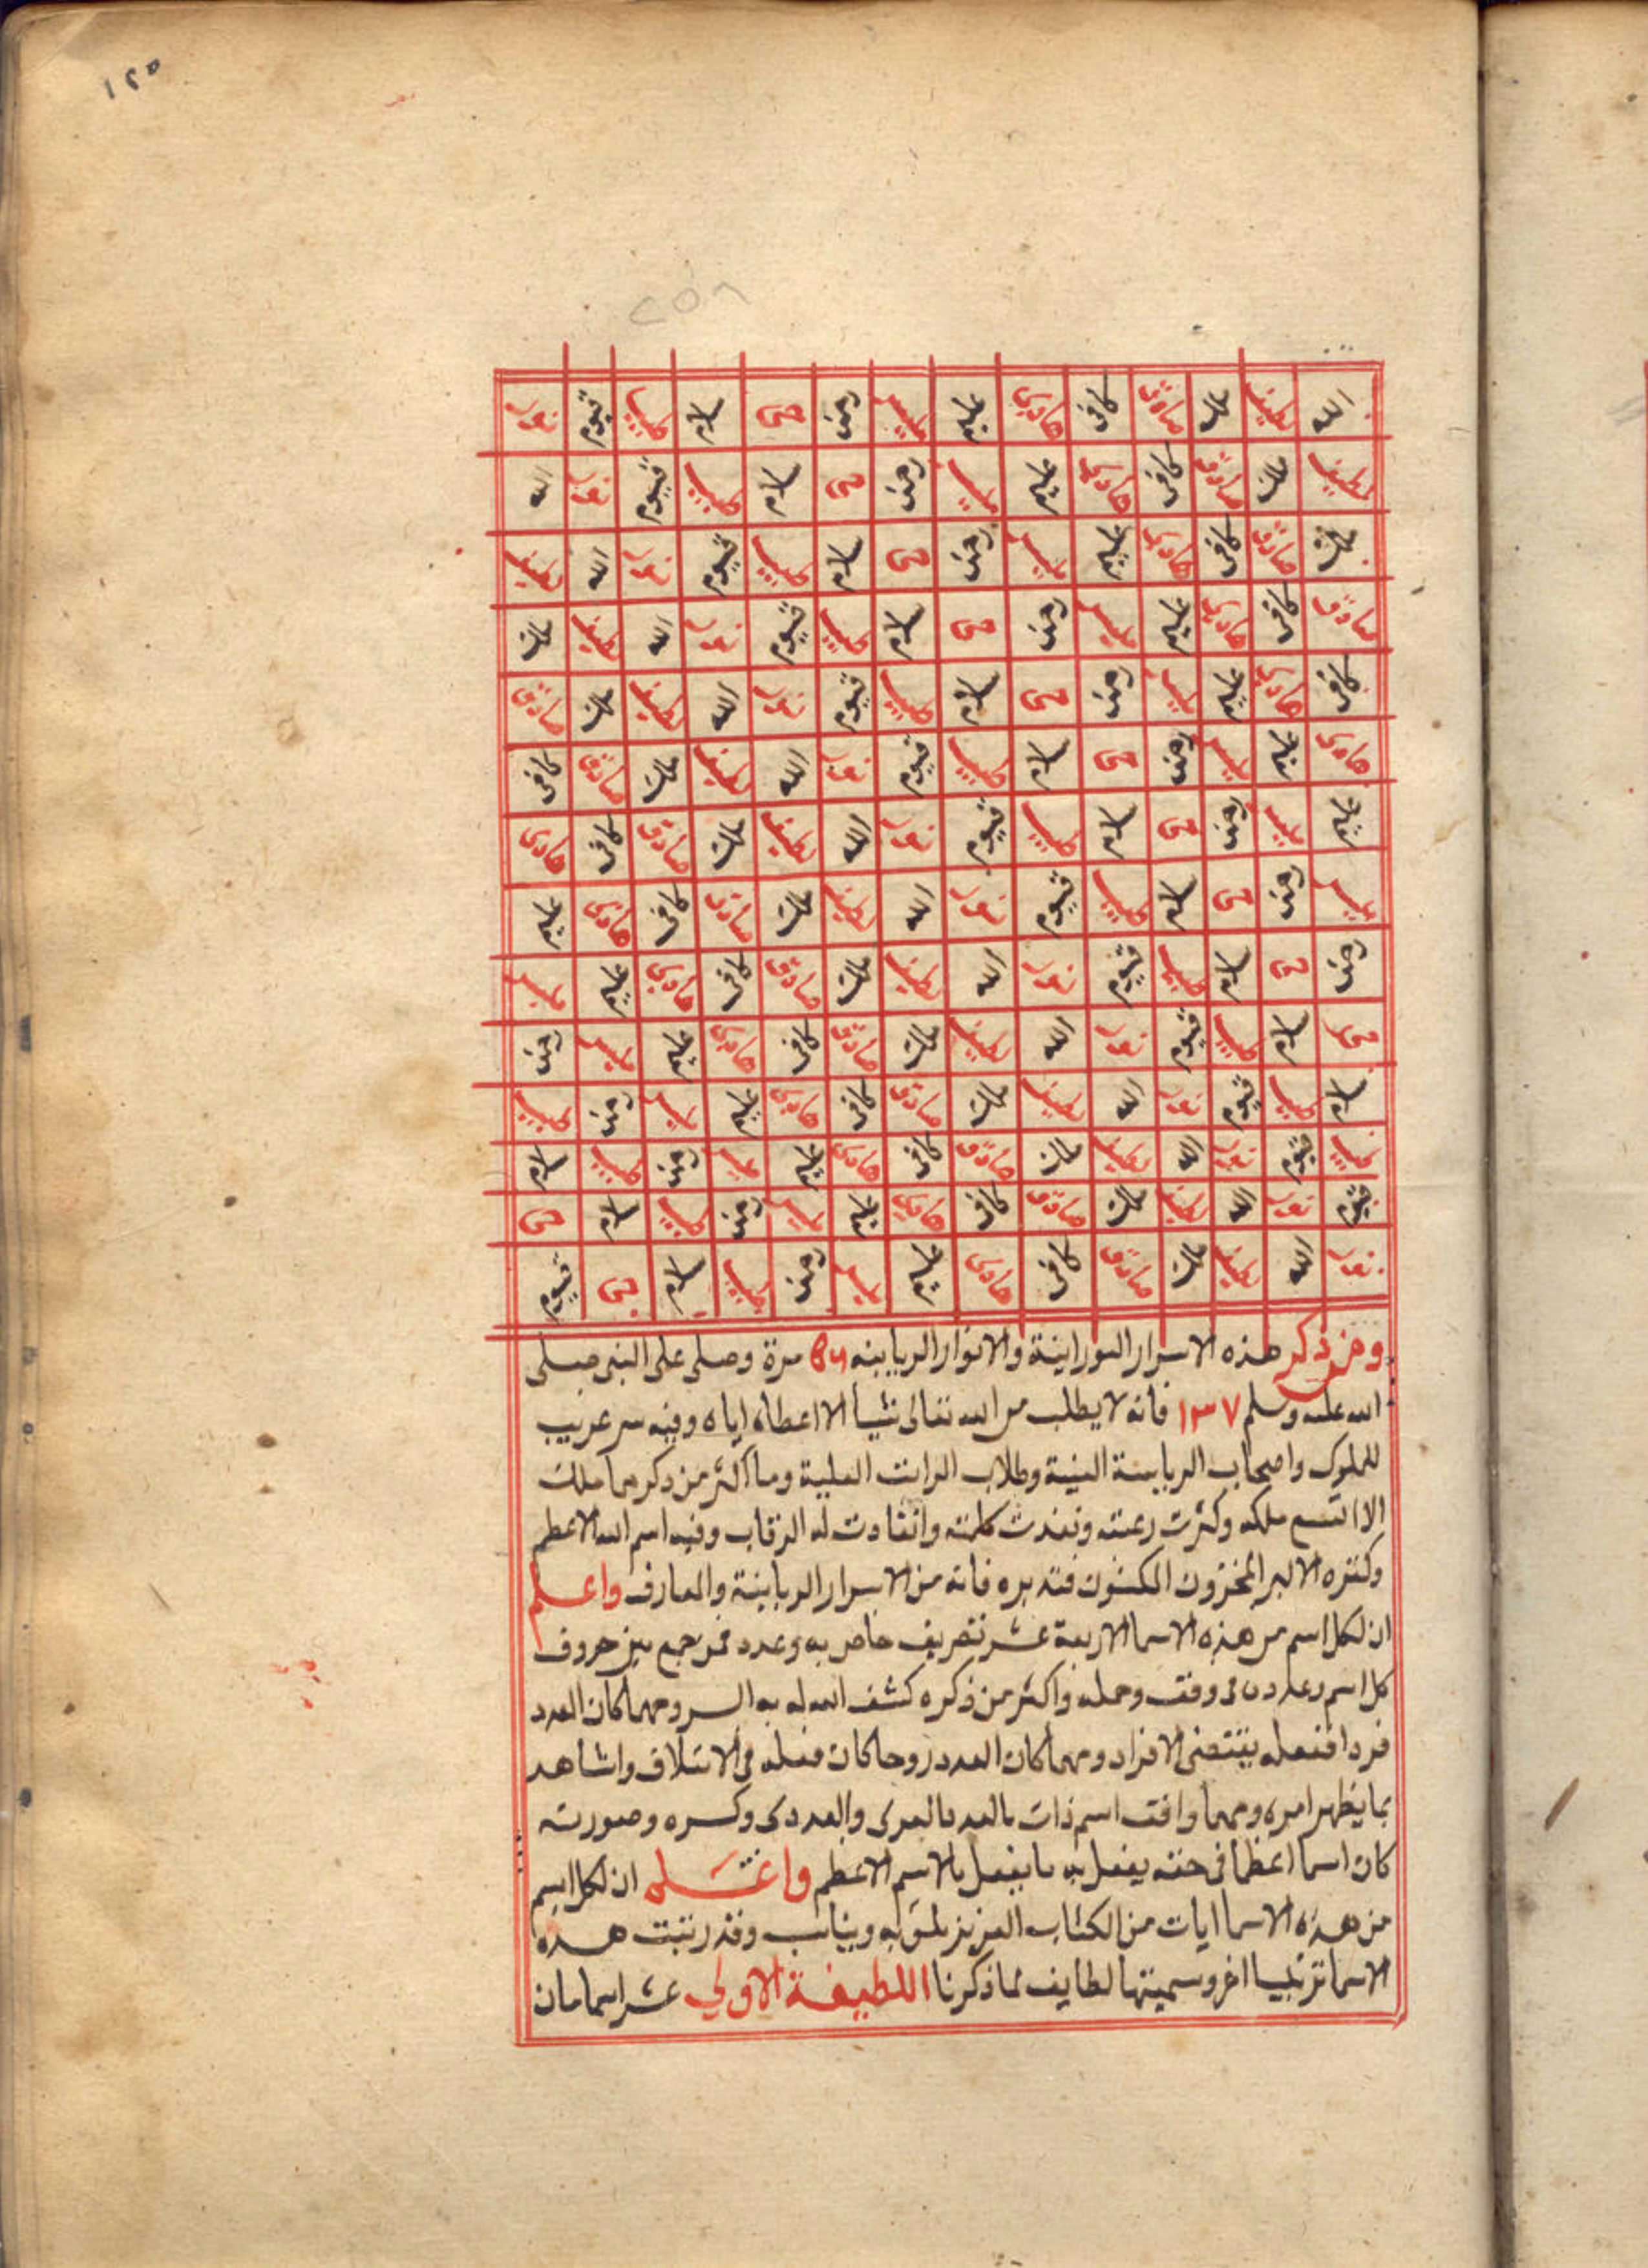 ١٢٥
٢٥٨
الله لطيف ملك صادق كافى هادى عليم رحمن حى سلام طبيب قيوم نور
لطيف ملك صادق كافى هادى عليم رحمن حى سلام طبيب قيوم نور الله
ملك صادق كافى هادى عليم رحمن حى سلام طبيب قيوم نور الله لطيف
صادق كافى هادى عليم رحمن حى سلام طبيب قيوم نور الله لطيف ملك
كافى هادى عليم رحمن حى سلام طبيب قيوم نور الله لطيف ملك صادق
هادى عليم رحمن حى سلام طبيب قيوم نور الله لطيف ملك صادق كافى
عليم رحمن حى سلام طبيب قيوم نور الله لطيف ملك صادق كافى هادى
رحمن حى سلام طبيب قيوم نور الله لطيف ملك صادق كافى هادى عليم
رحمن حى سلام طبيب قيوم نور الله لطيف ملك صادق كافى هادى عليم
حى سلام طبيب قيوم نور الله لطيف ملك صادق كافى هادى عليم رحمن
سلام طبيب قيوم نور الله لطيف ملك صادق كافى هادى عليم رحمن طبيب
طبيب قيوم نور الله لطيف ملك صادق كافى هادى عليم رحمن طبيب سلام
قيوم نور الله لطيف ملك صادق كافى هادى عليم رحمن طبيب سلام حى
نور الله لطيف ملك صادق كافى هادى عليم رحمن طبيب سلام حى قيوم
ومن ذكر هذه الاسرار النورانية والانوار الربانيه مرة وصلى على النبى صلى
الله عليه وسلم ١٣٧ فانه لا يطلب من الله تعالى شيا الا اعطاه اياه وفيه سر غريب
للملوك واصحاب وطلاب العلية وما اكثر من ذكرها ملك
الا اتسع ملكه وكثرت رعيته ونفذت كلمته وانقادت له الرقاب وفيه اسم الله الاعظم
وكنزه الاكبر المخزون المكنون فتدبره فانه من الاسرار الربانية والمعارف واعلم
ان لكل اسم من هذه الاسما الاربعة عشر تصريف خاص به وعدد فمن جمع بين حروف
كل اسم وعدده فى وفق وحمله واكثر من ذكره كشف الله له به السر ومهما كان العدد
فردا ففعله يقتضى الافراد ومهما كان العدد زوجا كان فعله فى الائتلاف واشاهد
بما يظهر امره ومهما وافق اسم ذات والعددى وكسره وصورته
كان اسما اعظما فى حقه يفعل به ما يفعل بالاسم الاعظم واعلم ان لكل اسم
من هذه الاسما ايات من الكتاب العزيز به ويناسب وقد رتبت هذه
الاسما ترتيبا اخر وسميتها لطايف لما ذكرنا اللطيفة الاولى عشر اسما